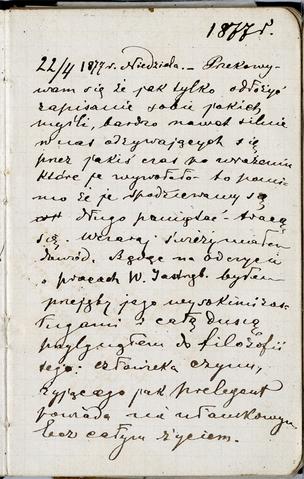 1877 r.
22/4 1877 r. Niedziela. – Przekony-
wam się że jak tylko odłożyć
zapisanie sobie jakich
myśli, bardzo nawet silnie
w nas odzywających się
przez jakiś czas po wrażeniu
które je wywołało – to pomi-
mo że je spodziewamy się
długo pamiętać tracą
się. Wczoraj świeży miałem
dowód. Będąc na odczycie
o pracach W. Jastrzęb. byłem
przejęty jego wysokimi zas-
ługami i całą duszą
przylgnąłem do filozofii
tego: człowieka czynu,
żyjącego jak prelegent
powiada nie ułamkowym
lecz całym życiem.